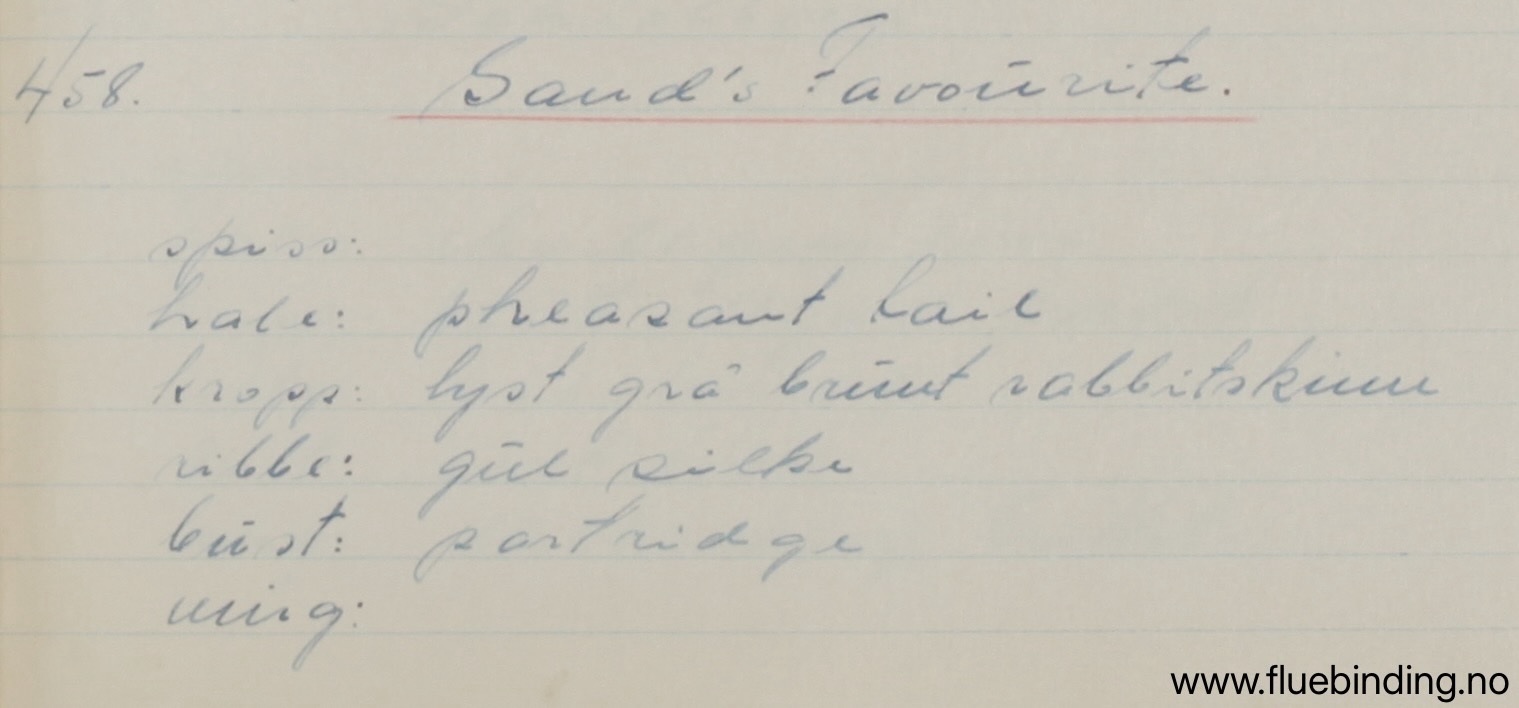 4/58. Sand's Favourite.
spiss:
hale: pheasant tail
kropp: lyst grå brunt rabbitskinn
ribbe: gul silke
bust: partridge
ving:
www.fluebinding.no